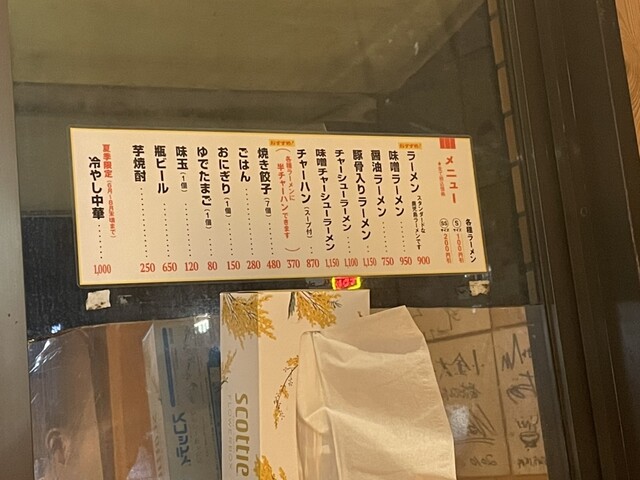 メニュー
各種ラーメン
Sサイズ 100円引
SSサイズ 200円引
おすすめ!
ラーメン スタンダードな鹿児島ラーメンです 900
味噌ラーメン 950
醤油ラーメン 750
豚骨入りラーメン 1,150
チャーシューラーメン 1,100
味噌チャーシューラーメン 1,150
チャーハン(スープ付) 870
おすすめ!
(各種ラーメンに半チャーハンできます) 370
焼き餃子(7個) 480
ごはん 280
おにぎり(1個) 150
ゆでたまご(1個) 80
味玉(1個) 120
瓶ビール 650
芋焼酎 250
夏季限定
冷やし中華 1,000
scottie